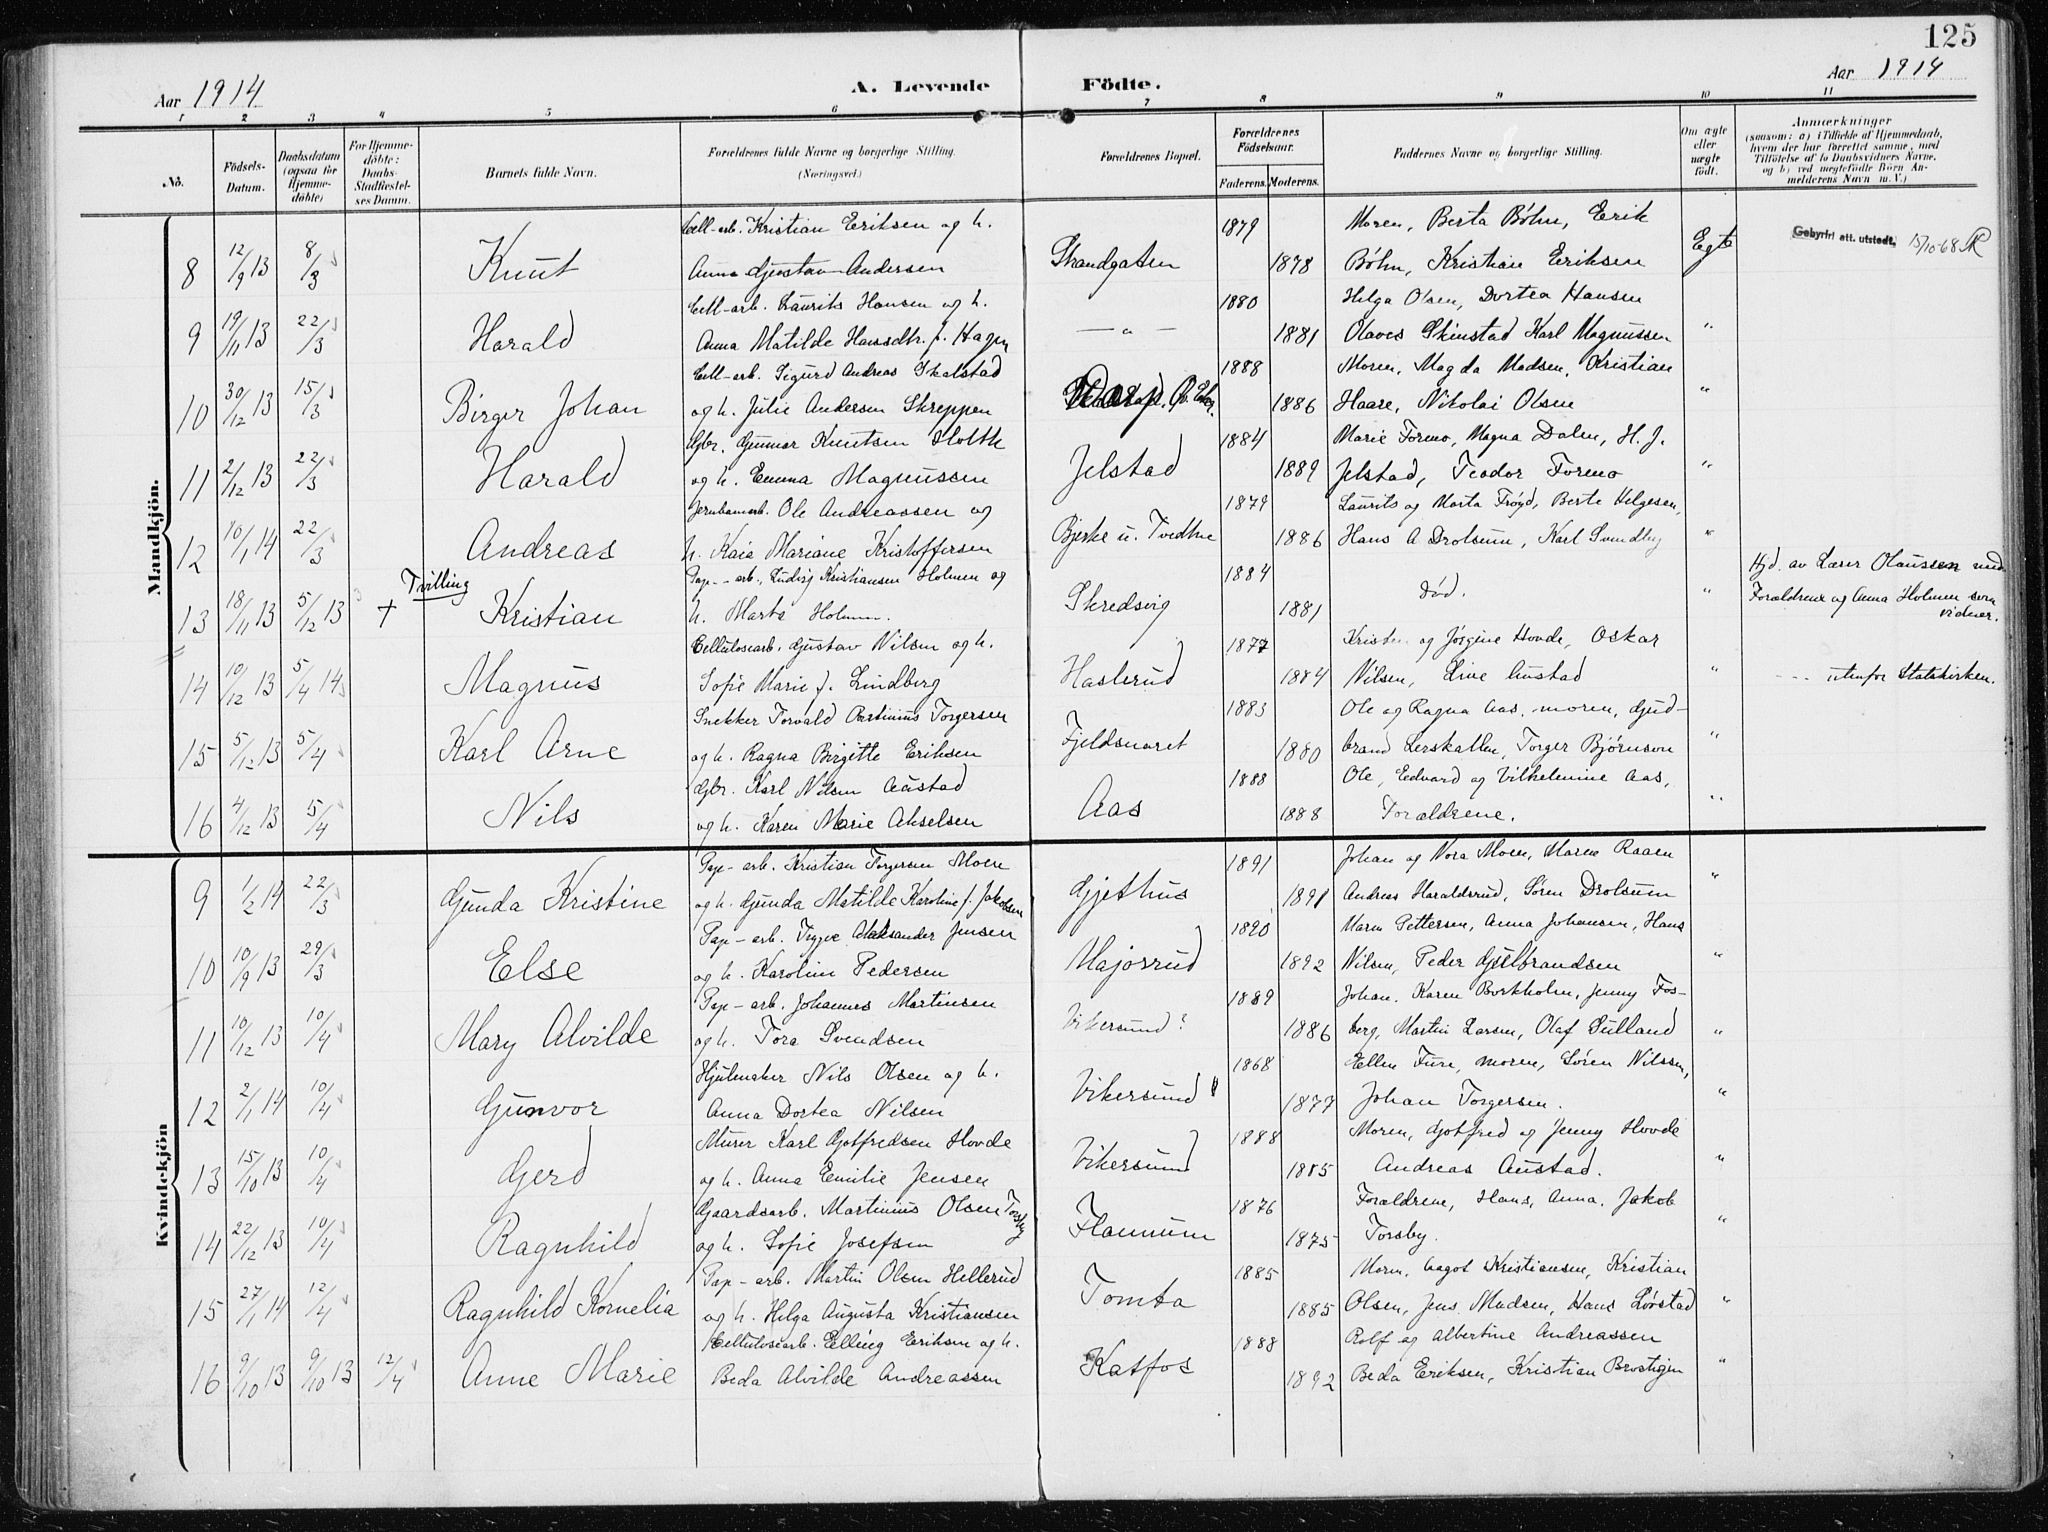 125
Aar 1914 A. Levende Födte. Aar 1914
1 2 3 4 5 6 7 8 9 10 11
No.
Födsels-Datum.
Daabsdatum (ogsaa for Hjemmedöbte)
For Hjemmedöbte: Daabs Stadfæstelses Datum.
Barnets fulde Navn.
Forældrenes fulde Navne og borgerlige Stilling. (Næringsvei.)
Forældrenes Bopæl.
Forældrenes Födselsaar.
Faderens. Moderens.
Faddernes Navne og borgerlige Stilling.
Om ægte eller uægte födt.
Anmærkninger (saasom: a) i Tilfælde af Hjemmedaab, hvem der har forrettet samme, med Tilföielse af to Daabsvidners Navne, og b) ved uægtefödte Börn Anmelderens Navn m. V.)
Mandkjön.
Cell-arb. Kristian Eriksen og h. 1879 Moren, Berta Bøhn, Erik
8 12/9 13 8/3 Knut Anna Gustav Andersen Strandgaten 1878 Bøhn, Kristian Eriksen Egte Gebyrfri att. utstedt, 15/10-68
Cell-arb. Laurits Hansen og h. 1880 Helga Olsen, Dortea Hansen
9 19/11 13 22/3 Harald Anna Matilde Hansdtr. f. Hagen — " — 1881 Olaves Skinstad Karl Magnussen "
Cell-arb. Sigurd Andreas Skalstad 1888 Moren, Magda Madsen, Kristian
10 30/12 13 15/3 Birger Johan og h. Julie Andersen Skreppen 1886 Haare, Nikolai Olsen "
Gbr. Gunnar Knutsen Holth 1884 Marie Formo, Magna Dalen, H. J.
11 2/12 13 22/3 Harald og h. Emma Magnussen Jelstad 1889 Jelstad, Teodor Formo "
Jernbanearb. Ole Andreassen og 1879 Laurits og Marta Frøyd, Berte Helgesen,
12 10/1 14 22/3 Andreas h. Kaia Mariane Kristoffersen Bjerke u. Tvedtne 1886 Hans A Drolsum, Karl Svendby "
Tvilling Pap-arb., Ludvig Kristiansen Holmen og 1884 Hjd. av Lærer Olaussen med
13 18/11 13 5/12 13 + Kristian h. Marta Holmen. Skredsvig 1881 død. " Forældrene og Anna Holmen som vidner.
Cellulosearb. Gustav Nilsen og h. 1877 Kristen og Jørgine Hovde, Oskar
14 10/12 13 5/4 14 Magnus Sofie Marie f. Lindberg Haslerud 1884 Nilsen, Line Austad " utenfor Statskirken.
Snekker Torvald Martinius Torgersen 1883 Ole og Ragna Aas. moren, Gud-
15 5/12 13 5/4 Karl Arne og h. Ragna Birgitte Eriksen Fjeldsnaret 1880 brand Lerskallen, Torger Bjørnson "
Gbr. Karl Nilsen Austad 1888 Ole, Edvard og Vilhelmine Aas,
16 4/12 13 5/4 Nils og h. Karen Marie Akselsen Aas 1888 Forældrene. "
Kvindekjön
Pap-arb. Kristian Torgersen Moen 1891 Johan og Nora Moen, Maren Raaen
9 1/2 14 22/3 Gunda Kristine og h. Gunda Matilde Karoline f. Jakobsen Gjethus 1891 Andreas Haraldsrud, Søren Drolsum "
Pap-arb. Trygve Aleksander Jensen 1890 Maren Pettersen, Anna Johansen, Hans
10 10/9 13 29/3 Else og h. Karoline Pedersen Majorrud 1892 Nilsen, Peder Gulbrandsen "
Pap-arb. Johannes Martinsen 1889 Johan. Karen Borkholm, Jenny Fos-
11 10/12 13 10/4 Mary Alvilde og h. Tora Svendsen Vikersund 1886 berg, Martin Larsen, Olaf Sulland "
Hjulmaker Nils Olsen og h. 1868 Ellen Fure, moren, Søren Nilssen,
12 2/1 14 10/4 Gunvor Anna Dortea Nilsen Vikersund 1877 Johan Torgersen. "
Murer Karl Gotfredsen Hovde 1888 Moren, Gotfred og Jenny Hovde
13 15/10 13 10/4 Gerd og h. Anna Emilie Jensen Vikersund 1885 Andreas Austad. "
Gaardsarb. Martinius Olsen Torsby 1876 Forældrene, Hans, Anna, Jakob
14 22/12 13 10/4 Ragnhild og h. Sofie Josefsen Flannum 1875 Torsby. "
Pap-arb. Martin Olsen Hellerud 1885 Moren, Aagot Kristiansen, Kristian
15 27/1 14 12/4 Ragnhild Kornelia og h. Helga Augusta Kristiansen Tomta 1885 Olsen, Jens Madsen, Hans Løvstad "
Cellulosearb. Elling Eriksen og h. 1888 Rolf og Albertine Andreassen
16 9/10 13 9/10 13 12/4 Anne Marie Beda Alvilde Andreassen Katfos 1892 Beda Eriksen, Kristian Brostigen "